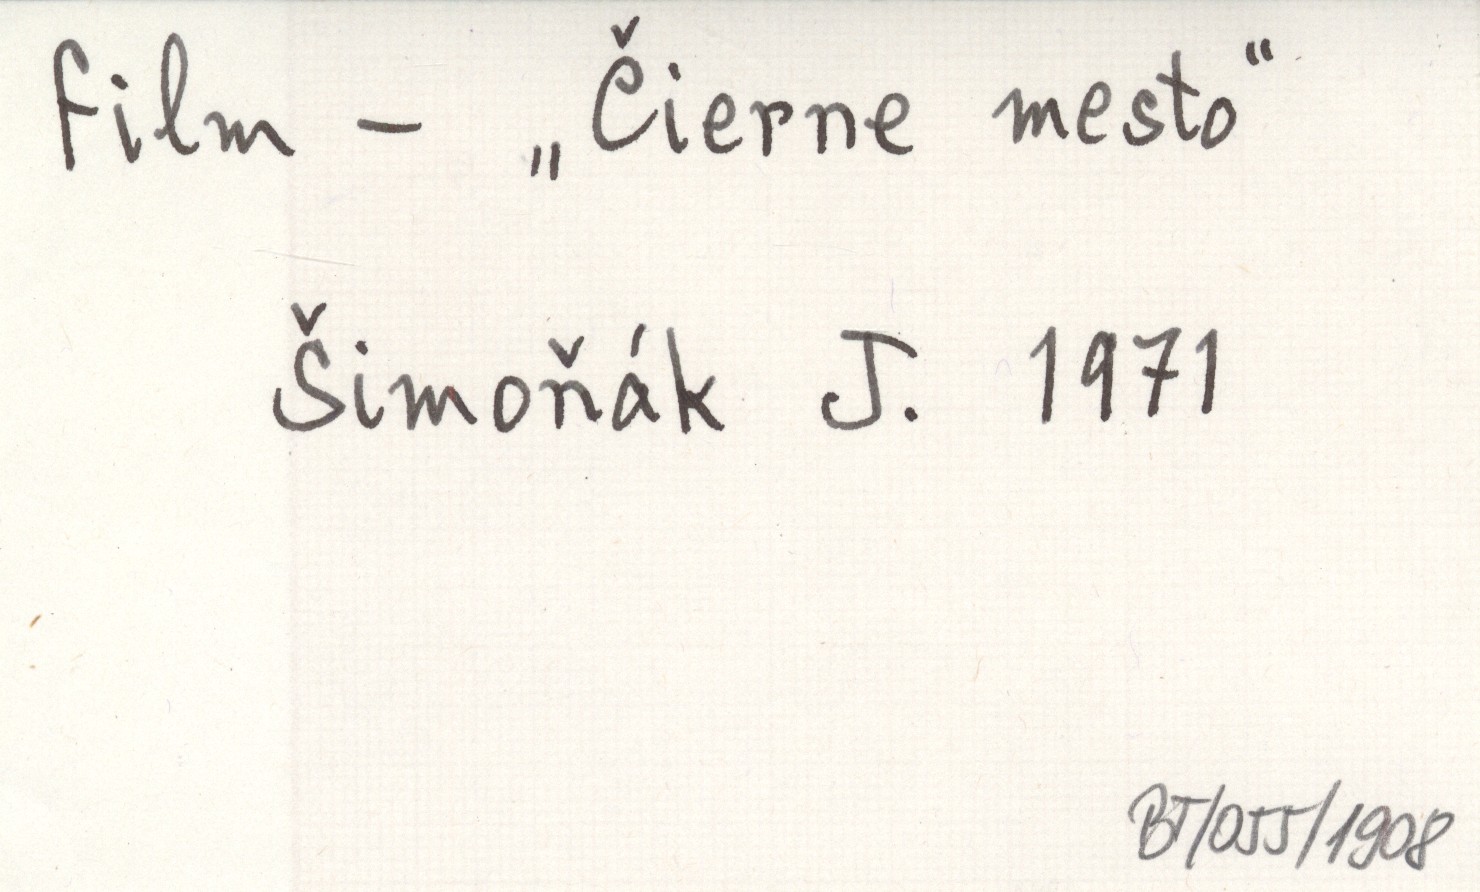 Film - „Čierne mesto“
Šimoňák J. 1971
BT/055/1908